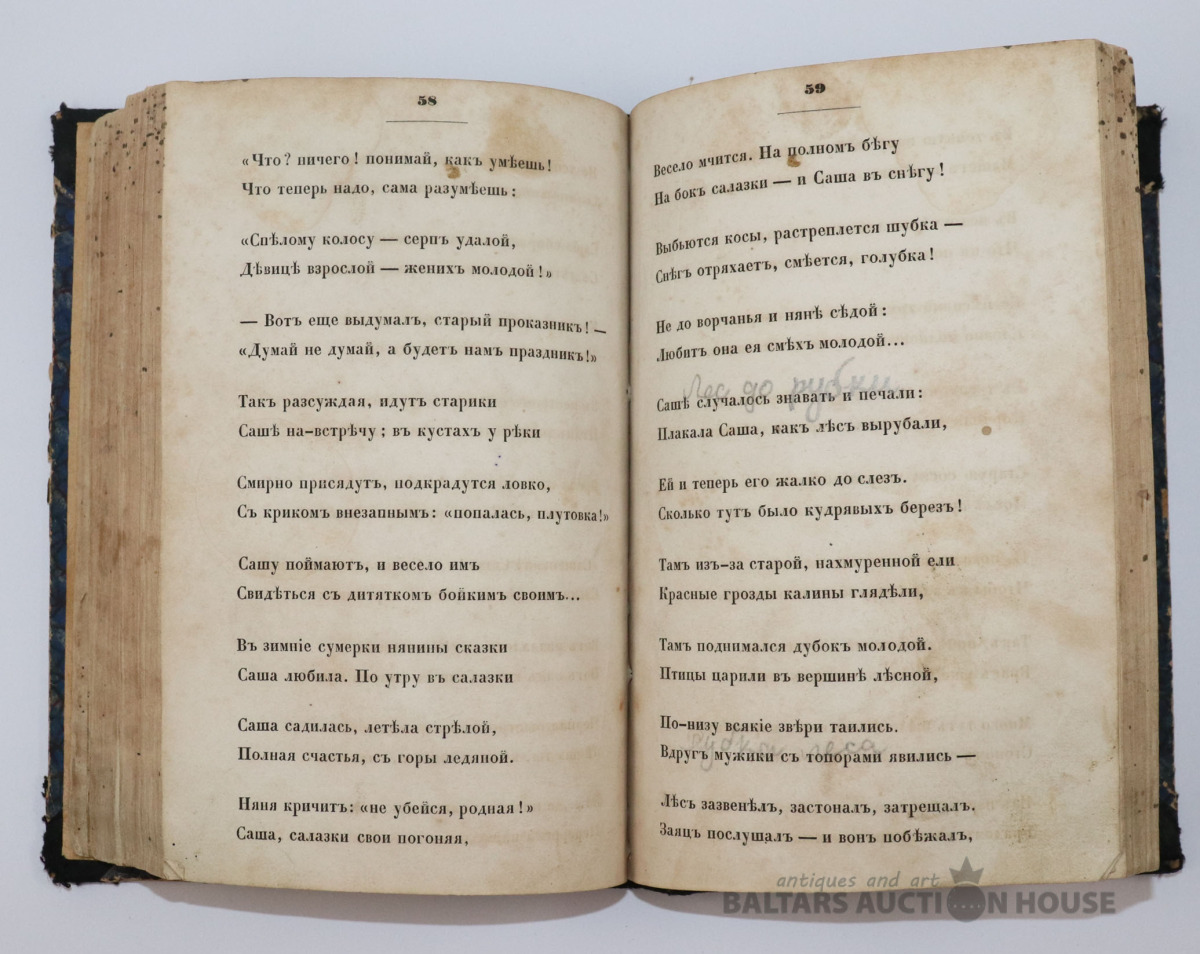 58
«Что? ничего! понимай, какъ умѣешь!
Что теперь надо, сама разумѣешь:
«Спѣлому колосу — серпъ удалой,
Дѣвицѣ взрослой — женихъ молодой!»
— Вотъ еще выдумалъ, старый проказникъ! —
«Думай не думай, а будетъ намъ праздникъ!»
Такъ разсуждая, идутъ старики
Сашѣ на-встрѣчу; въ кустахъ у рѣки
Смирно присядутъ, подкрадутся ловко,
Съ крикомъ внезапнымъ: «попалась, плутовка!»
Сашу поймаютъ, и весело имъ
Свидѣться съ дитяткомъ бойкимъ своимъ...
Въ зимніе сумерки нянины сказки
Саша любила. По утру въ салазки
Саша садилась, летѣла стрѣлой,
Полная счастья, съ горы ледяной.
Няня кричитъ: «не убейся, родная!»
Саша, салазки свои погоняя,
59
Весело мчится. На полномъ бѣгу
На бокъ салазки — и Саша въ снѣгу!
Выбьются косы, растреплется шубка —
Снѣгъ отряхаетъ, смѣется, голубка!
Не до ворчанья и нянѣ сѣдой:
Любитъ она ея смѣхъ молодой...
Лес до рубки
Сашѣ случалось знавать и печали:
Плакала Саша, какъ лѣсъ вырубали,
Ей и теперь его жалко до слезъ.
Сколько тутъ было кудрявыхъ березъ!
Тамъ изъ-за старой, нахмуренной ели
Красные грозды калины глядѣли,
Тамъ поднимался дубокъ молодой.
Птицы царили въ вершинѣ лѣсной,
По-низу всякіе звѣри таились.
рубка леса
Вдругъ мужики съ топорами явились —
Лѣсъ зазвенѣлъ, застоналъ, затрещалъ.
Заяцъ послушалъ — и вонъ побѣжалъ,
antiques and art
BALTARS AUCTION HOUSE